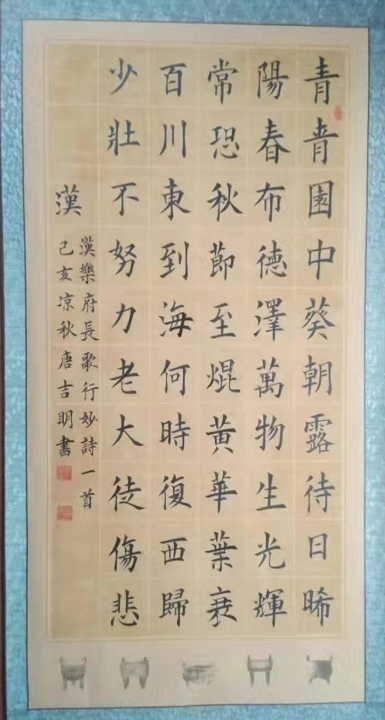 青青園中葵朝露待日晞
陽春布德澤萬物生光輝
常恐秋節至焜黃華葉衰
百川東到海何時復西歸
少壯不努力老大徒傷悲
漢
漢樂府長歌行妙詩一首
己亥凉秋唐吉明書